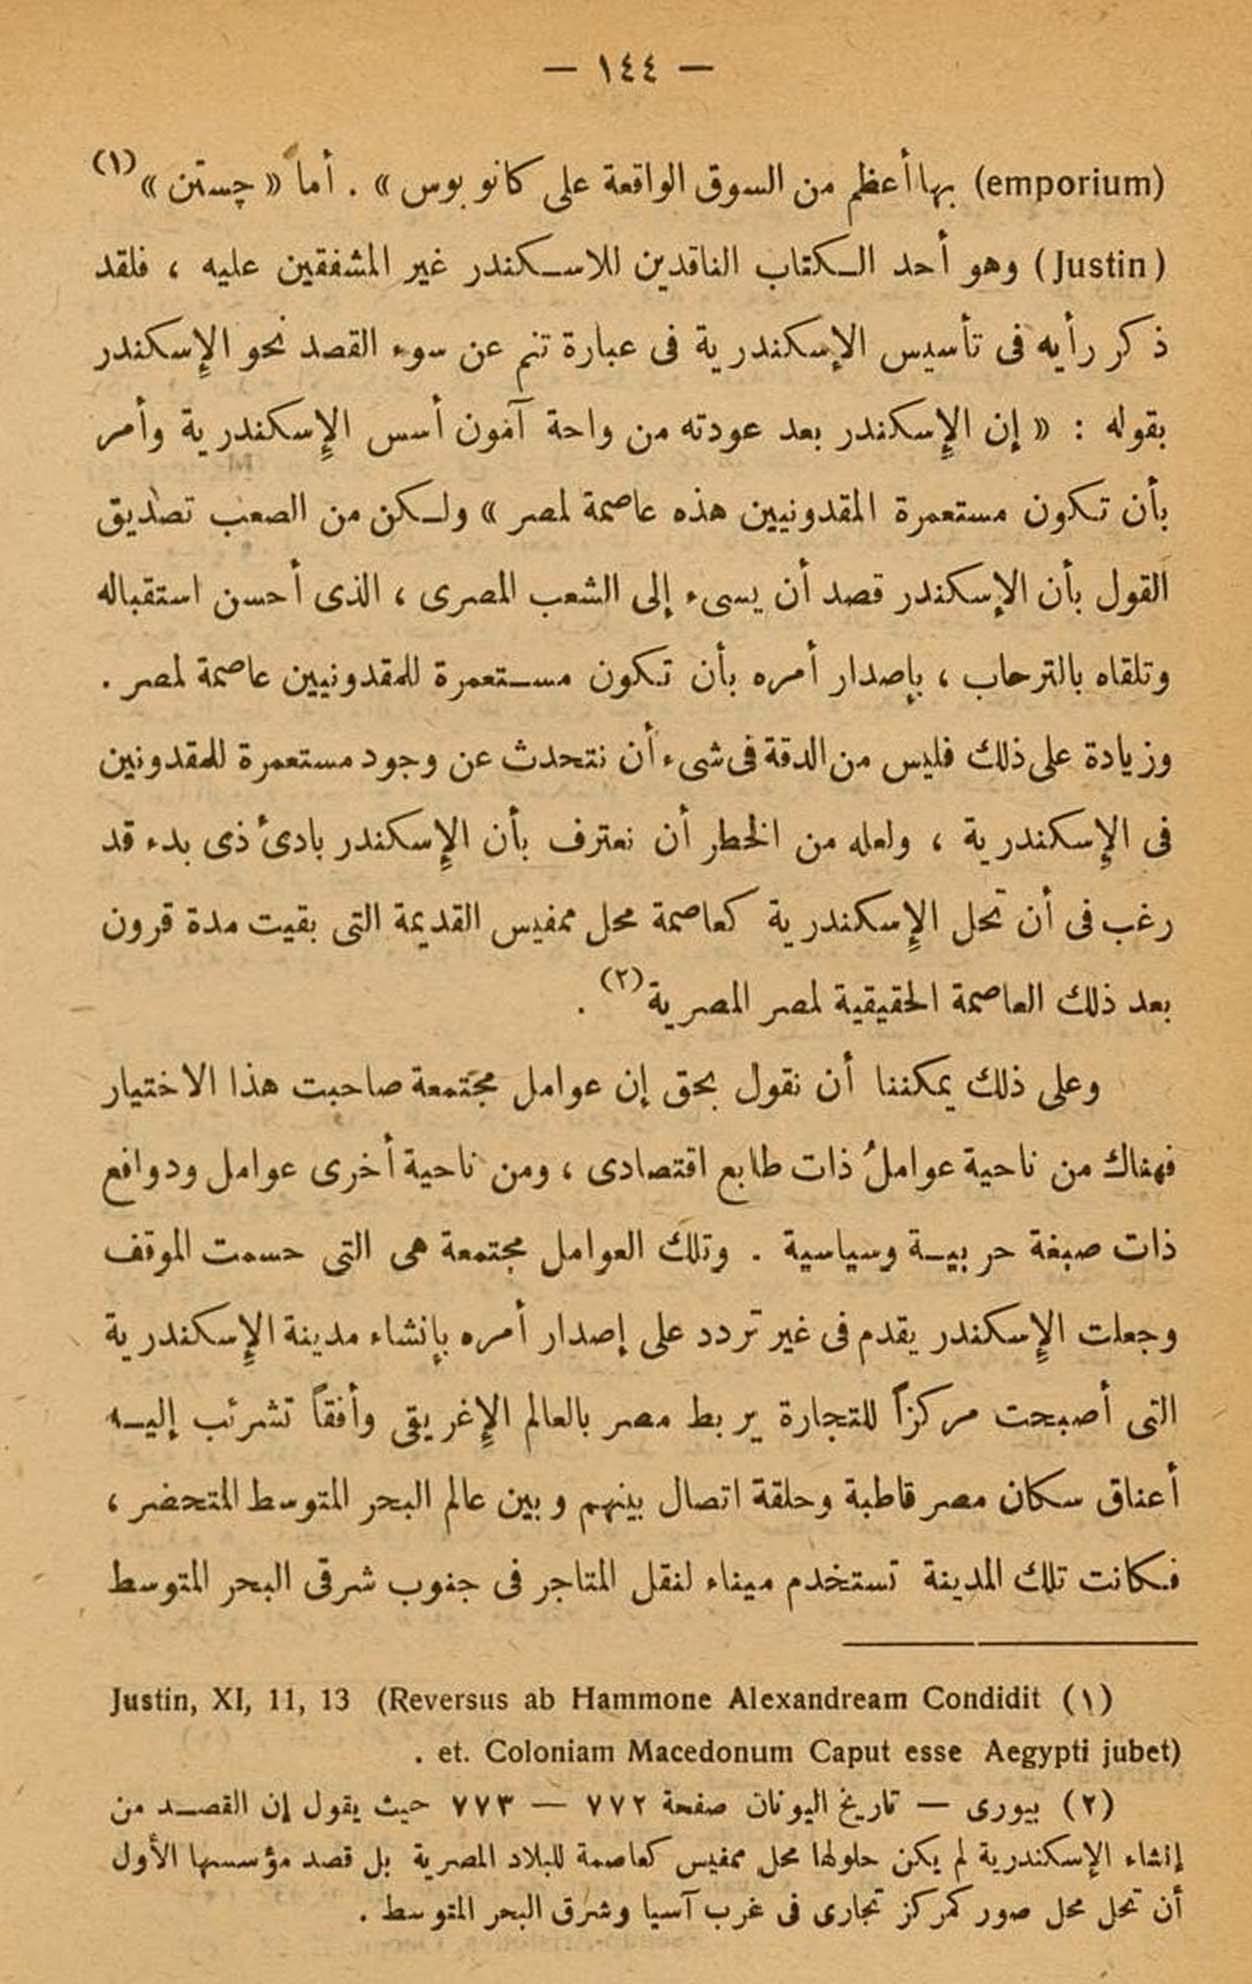 — ١٤٤ —
(emporium) بها أعظم من السوق الواقعة على كانو بوس » . أما « چستن » (١)
(Justin) وهو أحد الكتاب الناقدين للاسكندر غير المشفقين عليه ، فلقد
ذكر رأيه فى تأسيس الإسكندرية فى عبارة تنم عن سوء القصد نحو الإسكندر
بقوله : « إن الإسكندر بعد عودته من واحة آمون أسس الإسكندرية وأمر
بأن تكون مستعمرة المقدونيين هذه عاصمة لمصر » ولكن من الصعب تصديق
القول بأن الإسكندر قصد أن يسىء إلى الشعب المصرى ، الذى أحسن استقباله
وتلقاه بالترحاب ، بإصدار أمره بأن تكون مستعمرة للمقدونيين عاصمة لمصر .
وزيادة على ذلك فليس من الدقة فى شىء أن نتحدث عن وجود مستعمرة للمقدونين
فى الإسكندرية ، ولعله من الخطر أن نعترف بأن الإسكندر بادئ ذى بدء قد
رغب فى أن تحل الإسكندرية كعاصمة محل ممفيس القديمة التى بقيت مدة قرون
بعد ذلك العاصمة الحقيقية لمصر المصرية (٢) .
وعلى ذلك يمكننا أن نقول بحق إن عوامل مجتمعة صاحبت هذا الاختيار
فهناك من ناحية عواملُ ذات طابع اقتصادى ، ومن ناحية أخرى عوامل ودوافع
ذات صبغة حربية وسياسية . وتلك العوامل مجتمعة هى التى حسمت الموقف
وجعلت الإسكندر يقدم فى غير تردد على إصدار أمره بإنشاء مدينة الإسكندرية
التى أصبحت مركزاً للتجارة يربط مصر بالعالم الإغريقى وأفقاً تشرئب إليه
أعناق سكان مصر قاطبة وحلقة اتصال بينهم وبين عالم البحر المتوسط المتحضر ،
فكانت تلك المدينة تستخدم ميناء لنقل المتاجر فى جنوب شرقى البحر المتوسط
(١) Justin, XI, 11, 13 (Reversus ab Hammone Alexandream Condidit
et. Coloniam Macedonum Caput esse Aegypti jubet) .
(٢) بيورى — تاريخ اليونان صفحة ٧٧٢ — ٧٧٣ حيث يقول إن القصد من
إنشاء الإسكندرية لم يكن حلولها محل ممفيس كعاصمة للبلاد المصرية بل قصد مؤسسها الأول
أن تحل محل صور كمركز تجارى فى غرب آسيا وشرق البحر المتوسط .